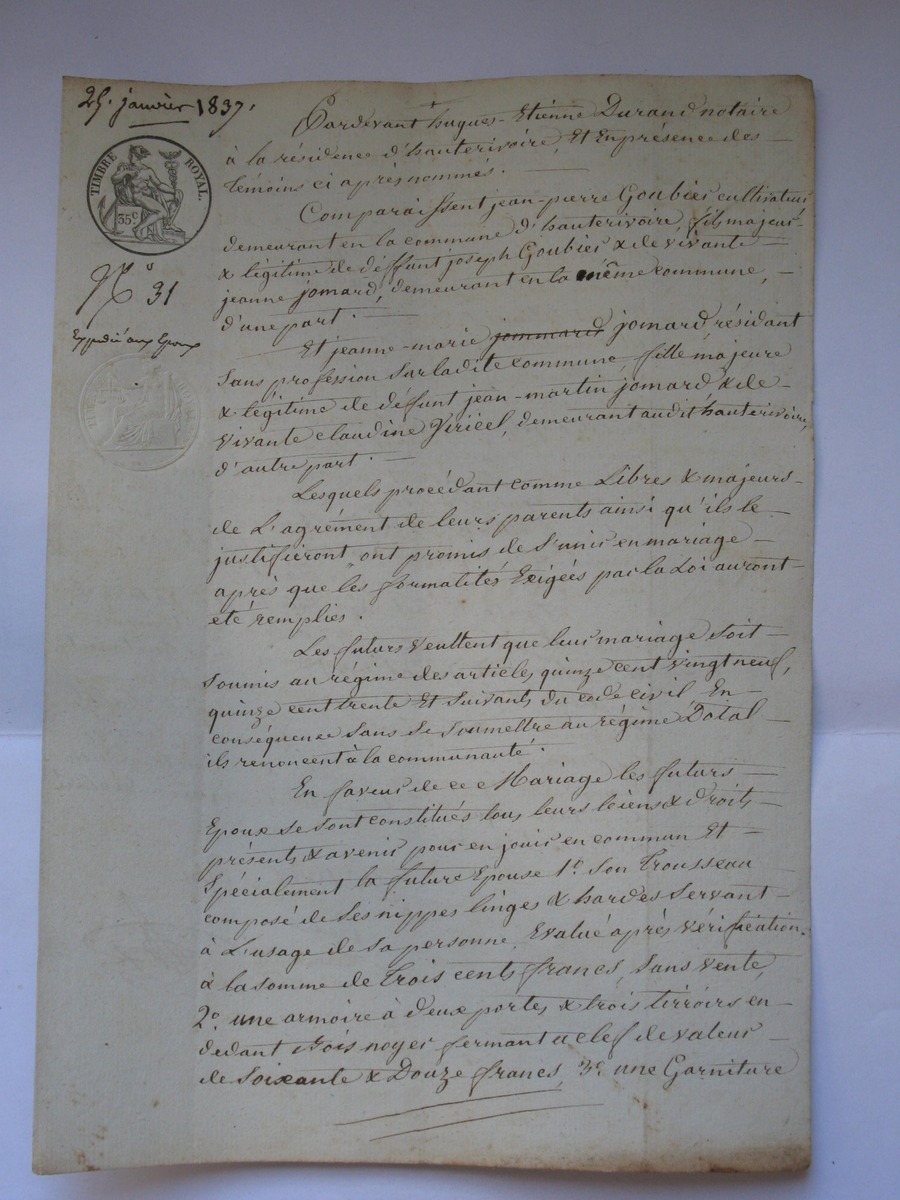 25. janvier 1837.
TIMBRE ROYAL.
35c
No 31
Expédié aux Epoux
Pardevant hugues-Etienne Durand notaire
à la résidence d'hauterivoire, Et En présence des
témoins ci après nommés.
Comparaissent jean-pierre Goubier cultivateur
demeurant en la commune d'hauterivoire, fils majeur
& légitime de déffunt joseph Goubier & de vivante
jeanne jomard, demeurant en la même commune,
d'une part.
Et jeanne-marie jommard jomard, résidant
sans profession sur la dite commune fille majeure
& légitime de défunt jean-martin jomard & de
vivante claudine Viricel, demeurant audit hauterivoire,
d'autre part.
Lesquels procédant comme Libres & majeurs
de L'agrément de leurs parents ainsi qu'ils le
justifieront ont promis de s'unir en mariage
après que les formalités Exigées par la Loi auront
été remplies.
Les futurs veultent que leur mariage soit
soumis au régime des articles quinze cent vingt neuf,
quinze cent trente Et suivants du code civil En
conséquence sans se soumettre au régime Dotal
ils renoncent à la communauté.
En faveur de ce Mariage les futurs
Epoux se sont constitués tous leurs biens & droits
présents & avenir pour en jouir en commun Et
Spécialement la future Epouse 1o Son Trousseau
composé de ses nippes linges & hardes servant
à L'usage de sa personne, Evalué après vérification
à la somme de trois cents francs, sans vente,
2o. une armoire à deux portes & trois tirroirs en
dedant bois noyer fermant à clef de valeur
de soixante & Douze francs, 3o une Garniture